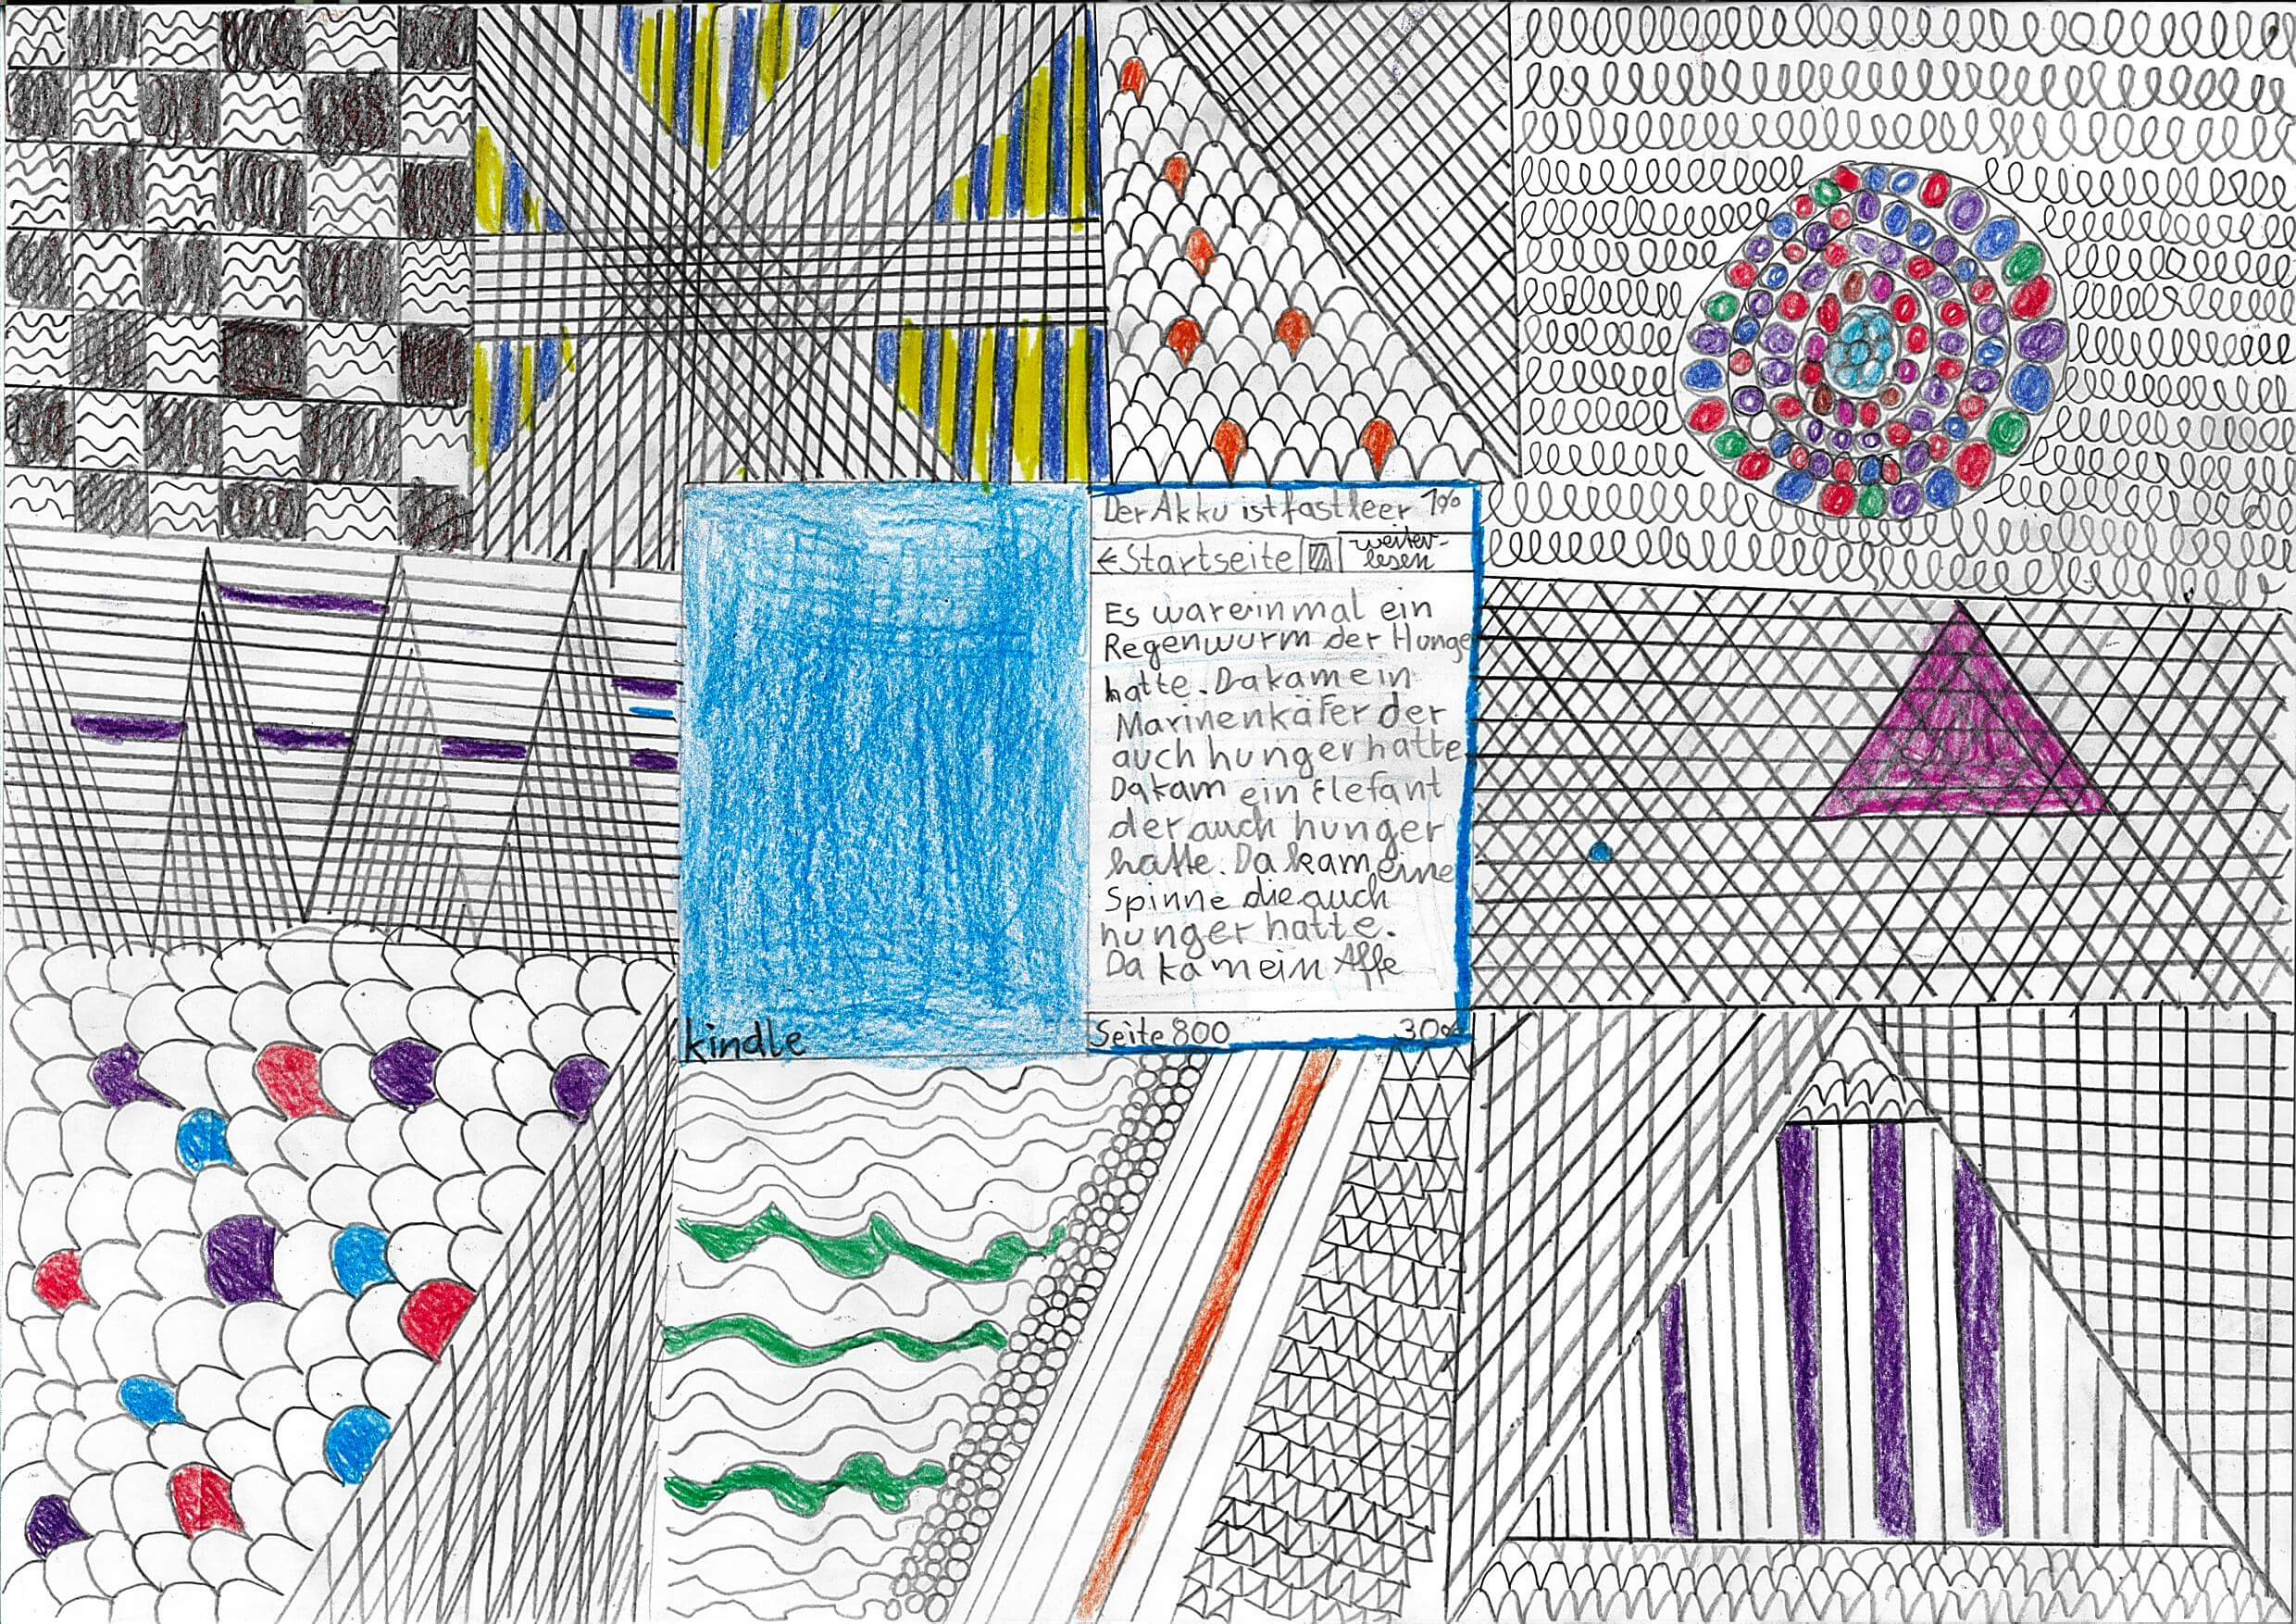 Der Akku ist fast leer 1%
← Startseite
weiter-
lesen
Es war einmal ein
Regenwurm der Hunge
hatte. Da kam ein
Marinenkäfer der
auch hunger hatte
Da kam ein Elefant
der auch hunger
hatte. Da kam eine
Spinne die auch
hunger hatte.
Da kam ein Affe
kindle
Seite 800 30%